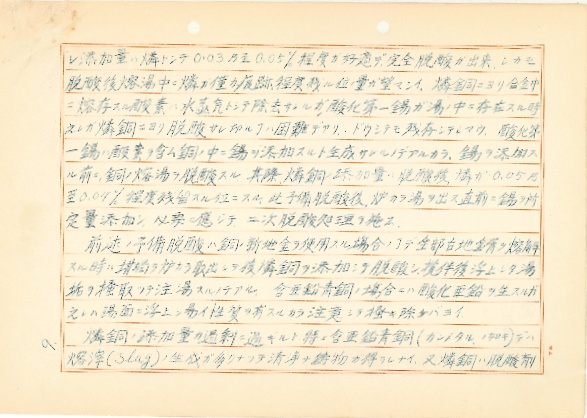 シ添加量ハ燐トシテ0.03乃至0.05%程度ガ好適デ完全脱酸ガ出来、シカモ
脱酸後熔湯中ニ燐ガ僅カ痕跡程度残ル位ノ量ガ望マシイ、燐銅ニヨリ合金中
ニ熔存スル酸素ハ水蒸気トシテ除去サレルガ酸化第一錫ガ湯ノ中ニ存在スル時
之レガ燐銅ニヨリ脱酸サレ却ル事ハ困難デアリ、ドウシテモ残存シテシマウ、酸化第
一錫ハ酸素ヲ含ム銅ノ中ニ錫ヲ添加スルト生成サレルノデアルカラ、錫ヲ添加ス
ル前ニ銅ノ熔湯ヲ脱酸スル 其際 燐銅ノ添加量ハ脱酸後、燐ガ0.05乃
至0.04%程度残留スル位ニスル、此予備脱酸後、炉カラ湯ヲ出ス直前ニ錫ヲ所
定量添加シ 必要ニ応ジテ二次脱酸処理ヲ施ス.
前述ノ予備脱酸ハ銅ノ新地金ヲ使用スル場合ノミデ全部古地金屑ヲ熔解
スル時ニハ坩堝ヲ炉カラ取出シテ後燐銅ヲ添加シテ脱酸シ、攪拌後浮上シタ湯
垢ヲ掻取リテ注湯スルノデアル、含亜鉛青銅ノ場合ニハ酸化亜鉛ヲ生ズルガ
之レハ湯面ニ浮上シ易イ性質ヲ有スルカラ注意シテ掻キ除ケバヨイ
燐銅ノ添加量ガ過剰ニ過ギルト特ニ含亜鉛青銅(ガンメタル、
熔滓(Slag)ノ生成ガ多クナツテ清浄ナ鋳物ガ得ラレナイ、又燐銅ハ脱酸剤
9